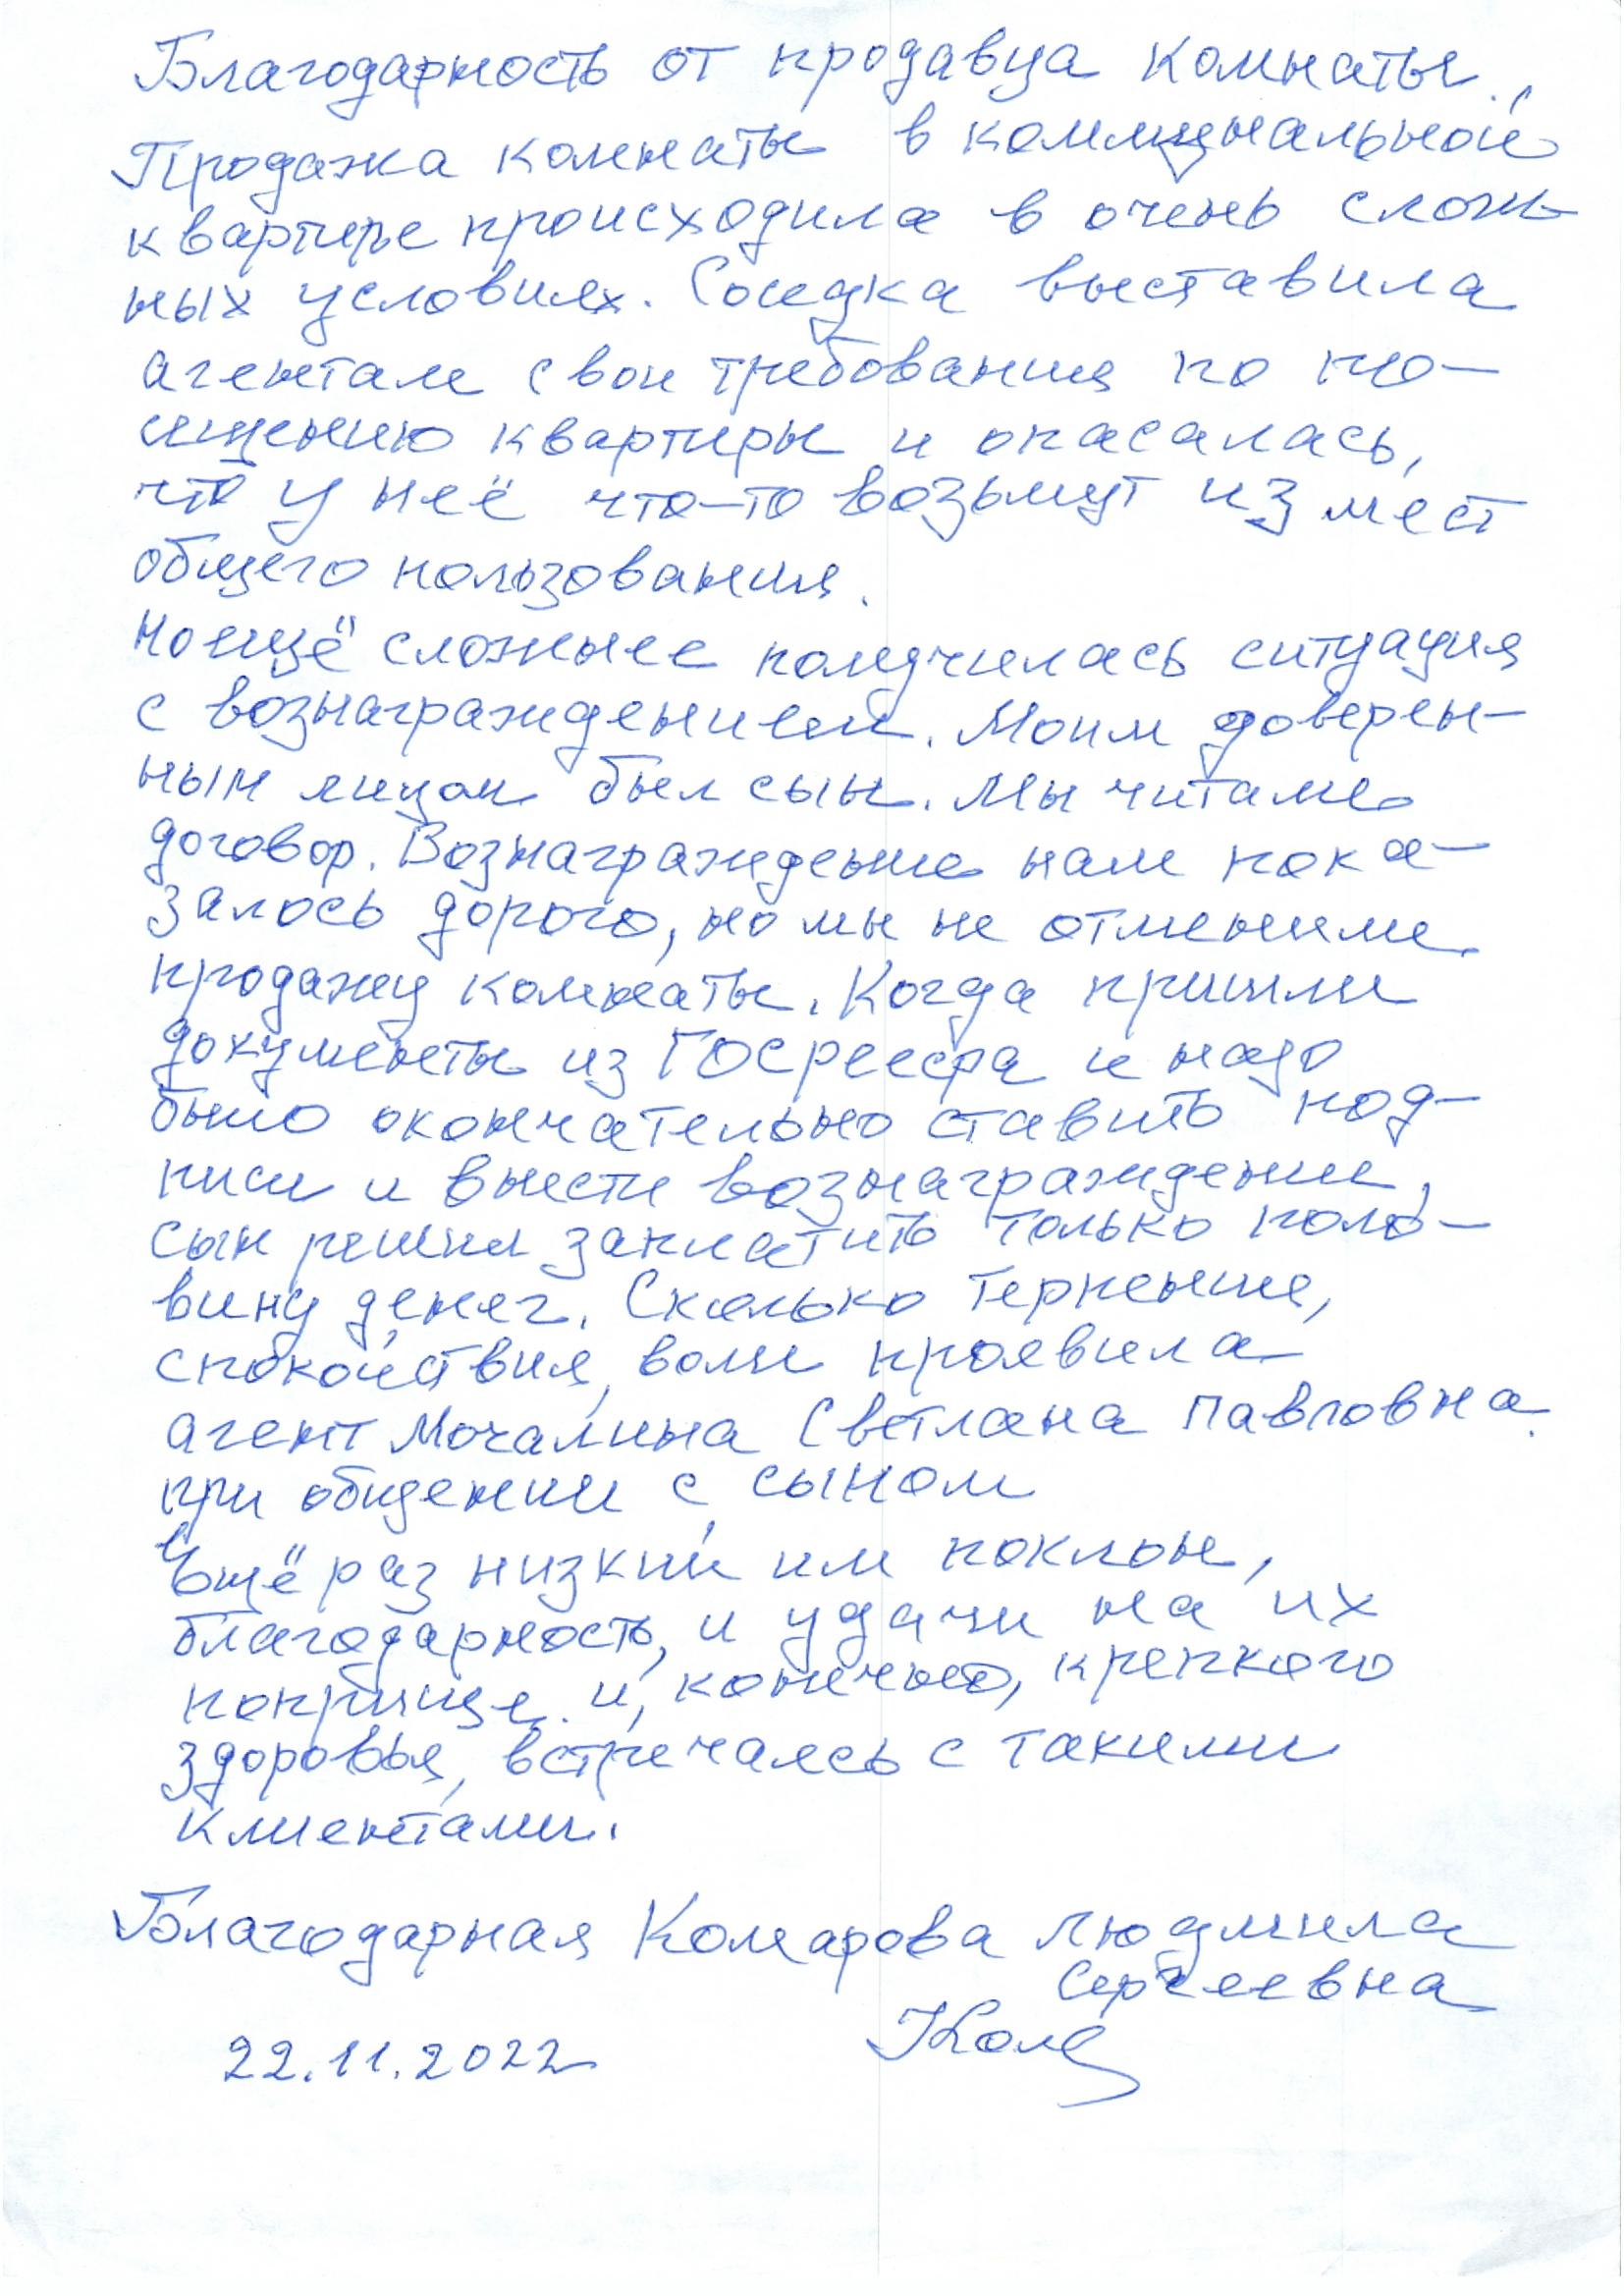 Благодарность от продавца комнаты.
Продажа комнаты в коммунальной
квартире происходила в очень слож-
ных условиях. Соседка выставила
агентам свои требования по по-
сещению квартиры и опасалась,
что у неё что-то возьмут из мест
общего пользования.
Но ещё сложнее получилась ситуация
с вознаграждением. Моим доверен-
ным лицом был сын. Мы читали
договор. Вознаграждение нам пока-
залось дорого, но мы не отменили
продажу комнаты. Когда пришли
документы из ГОСреестра и надо
было окончательно ставить под-
писи и внести вознаграждение,
сын решил заплатить только поло-
вину денег. Сколько терпения,
спокойствия, воли проявила
агент Мочалина Светлана Павловна
при общении с сыном
Ещё раз низкий им поклон,
благодарность, и удачи на их
поприще и, конечно, крепкого
здоровья, встречаясь с такими
клиентами.
Благодарная Комарова Людмила
Сергеевна
22.11.2022 Ком